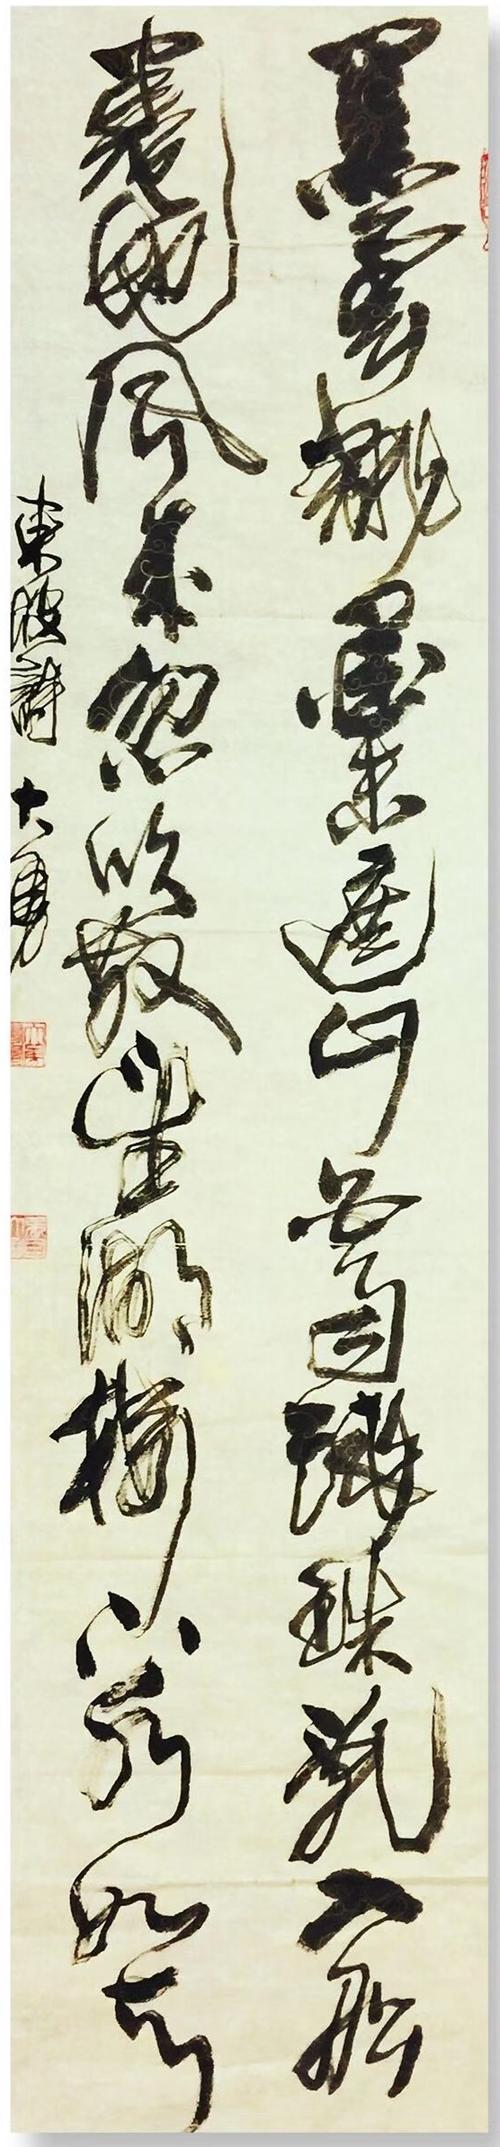 黑雲翻墨未遮山白雨跳珠亂入船
卷地風来忽吹散望湖樓下水如天
東坡詩 大勇